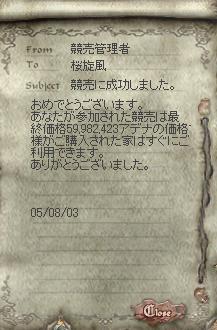 From 競売管理者
To 桜旋風
Subject 競売に成功しました。
おめでとうございます。
あなたが参加された競売は最
終価格59,982,423アデナの価格
様がご購入された家はすぐにご
利用できます。
ありがとうございました。
05/08/03
Close